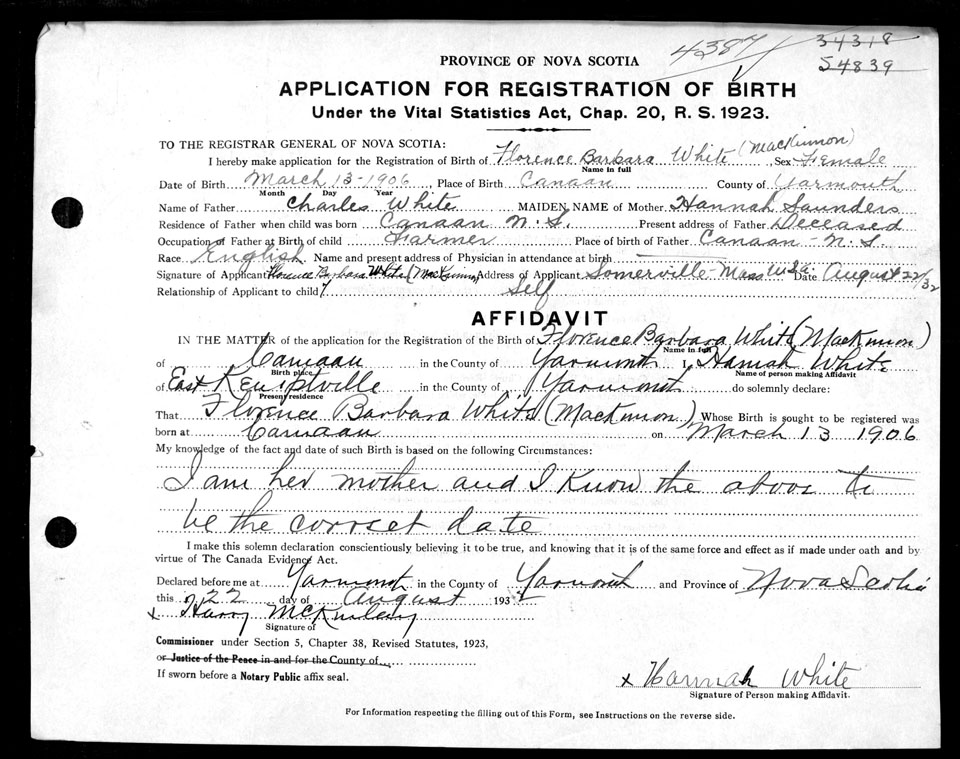 4387
34318
54839
PROVINCE OF NOVA SCOTIA
APPLICATION FOR REGISTRATION OF BIRTH
Under the Vital Statistics Act, Chap. 20, R. S. 1923.
TO THE REGISTRAR GENERAL OF NOVA SCOTIA:
I hereby make application for the Registration of Birth of Florence Barbara White (MacKinnon) Sex Female
Name in full
Date of Birth March 13-1906 Place of Birth Canaan County of Yarmouth
Month Day Year
Name of Father Charles White MAIDEN NAME of Mother Hannah Saunders
Residence of Father when child was born Canaan N.S. Present address of Father Deceased
Occupation of Father at Birth of child Farmer Place of birth of Father Canaan - N.S.
Race English Name and present address of Physician in attendance at birth
Signature of Applicant Florence Barbara White (MacKinnon) Address of Applicant Somerville-Mass U.S.A. Date August 22/32
Relationship of Applicant to child Self
AFFIDAVIT
IN THE MATTER of the application for the Registration of Birth of Florence Barbara White (MacKinnon)
Name in full
of Canaan in the County of Yarmouth I, Hannah White
Birth place Name of person making Affidavit
of East Kemptville in the County of Yarmouth do solemnly declare:
Present residence
That Florence Barbara White (MacKinnon) Whose Birth is sought to be registered was
born at Canaan on March 13 1906
My knowledge of the fact and date of such Birth is based on the following Circumstances:
I am her mother and I know the above to
be the correct date
I make this solemn declaration conscientiously believing it to be true, and knowing that it is of the same force and effect as if made under oath and by
virtue of The Canada Evidence Act.
Declared before me at Yarmouth in the County of Yarmouth and Province of Nova Scotia
this 22 day of August 1932
x Harry McKinley
Signature of
Commissioner under Section 5, Chapter 38, Revised Statutes, 1923,
or Justice of the Peace in and for the County of
If sworn before a Notary Public affix seal.
x Hannah White
Signature of Person making Affidavit.
For Information respecting the filling out of this Form, see Instructions on the reverse side.